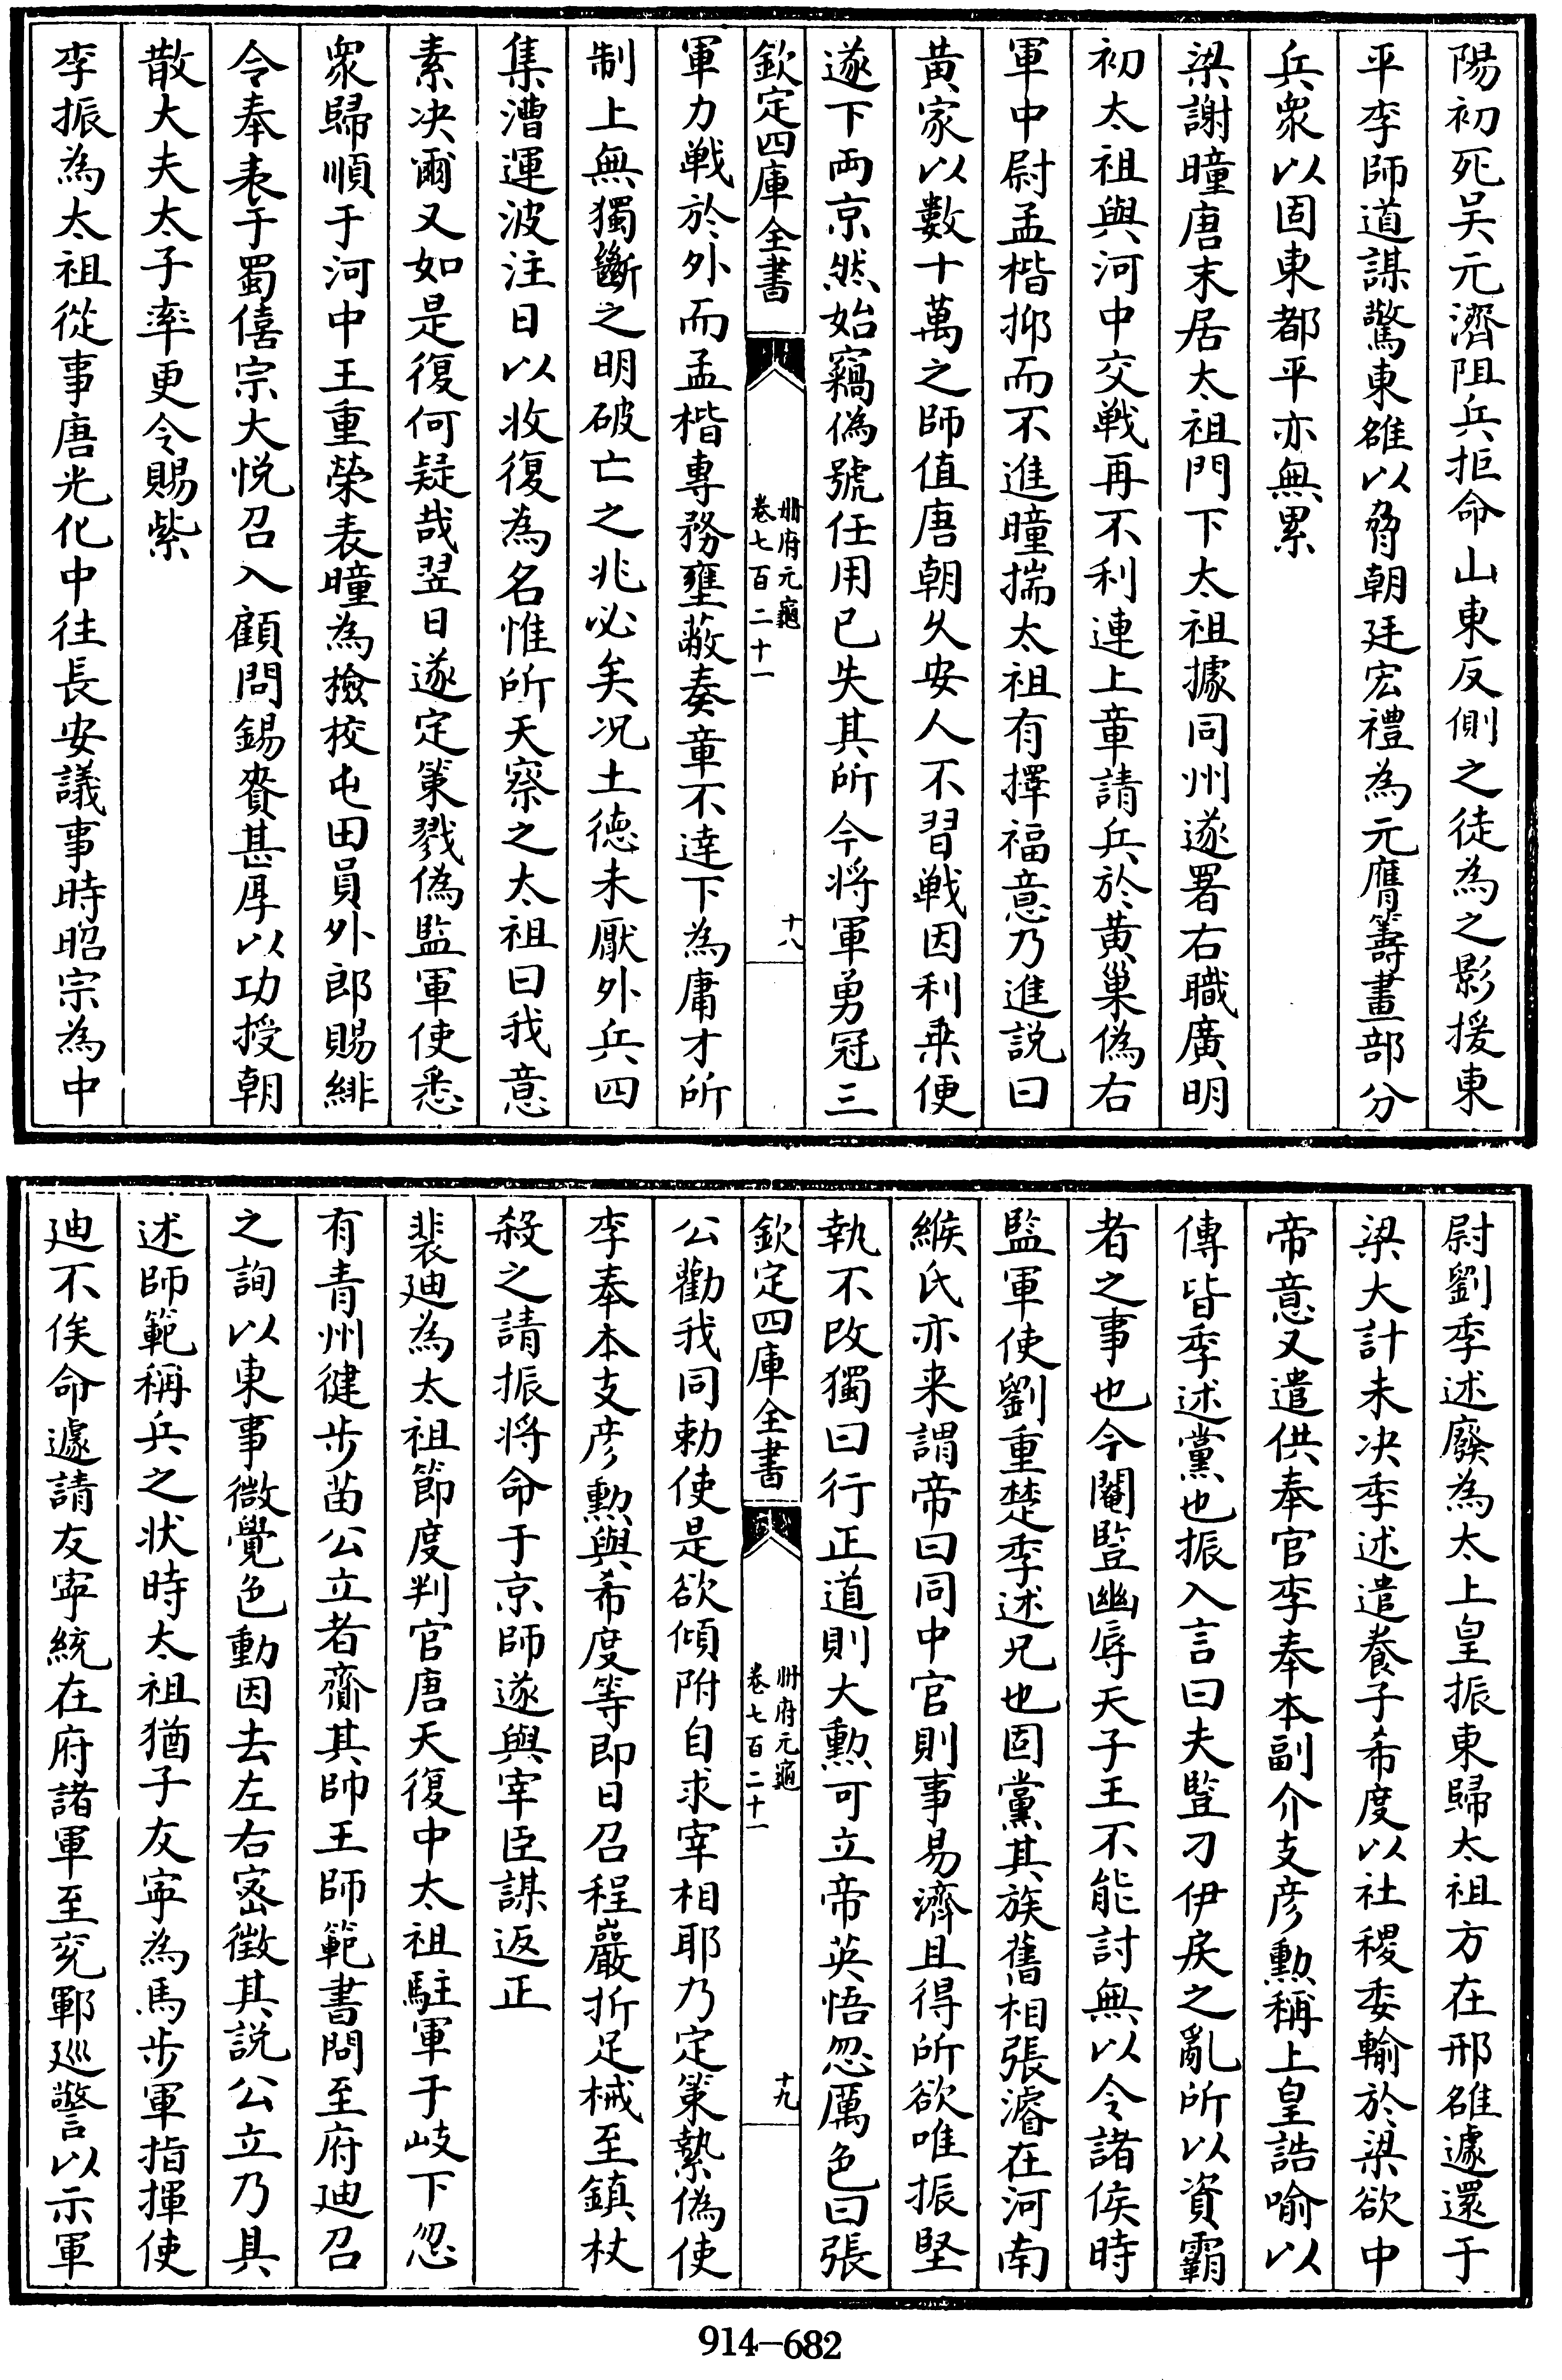 陽初死吴元濟阻兵拒命山東反側之徒為之影援東
平李師道謀驚東雒以脅朝廷宏禮為元膺籌畫部分
兵衆以固東都平亦無累
梁謝瞳唐末居太祖門下太祖據同州遂署右職廣明
初太祖與河中交戰再不利連上章請兵於黄巢偽右
軍中尉孟楷抑而不進瞳揣太祖有擇福意乃進説曰
黄家以數十萬之師值唐朝久安人不習戰因利乗便
遂下兩京然始竊偽號任用已失其所今将軍勇冠三
欽定四庫全書
冊府元龜
卷七百二十一
十八
軍力戰於外而孟楷專務壅蔽奏章不逹下為庸才所
制上無獨斷之明破亡之兆必矣况土徳未厭外兵四
集漕運波注日以收復為名惟所天察之太祖曰我意
素决爾又如是復何疑哉翌日遂定策戮偽監軍使悉
衆歸順于河中王重榮表瞳為檢校屯田員外郎賜緋
令奉表于蜀僖宗大悦召入顧問錫賚甚厚以功授朝
散大夫太子率更令賜紫
李振為太祖從事唐光化中往長安議事時昭宗為中
尉劉季述廢為太上皇振東歸太祖方在邢雒遽還于
梁大計未决季述遣養子希度以社稷委輸於梁欲中
帝意又遣供奉官李奉本副介支彦勲稱上皇誥喻以
傳皆季述黨也振入言曰夫豎刁伊戾之亂所以資霸
者之事也今閹豎幽辱天子王不能討無以令諸侯時
監軍使劉重楚季述兄也固黨其族舊相張濬在河南
緱氏亦来謂帝曰同中官則事易濟且得所欲唯振堅
執不改獨曰行正道則大勲可立帝英悟忽厲色曰張
欽定四庫全書
冊府元龜
卷七百二十一
十九
公勸我同勅使是欲傾附自求宰相耶乃定策縶偽使
李奉本支彦勲與希度等即日召程巖折足械至鎮杖
殺之請振将命于京師遂與宰臣謀返正
裴廸為太祖節度判官唐天復中太祖駐軍于岐下忽
有青州健步苗公立者齎其帥王師範書問至府廸召
之詢以東事微覺色動因去左右宻徴其説公立乃具
述師範稱兵之状時太祖猶子友寧為馬步軍指揮使
廸不俟命遽請友寧統在府諸軍至兖鄆廵警以示軍
914-682